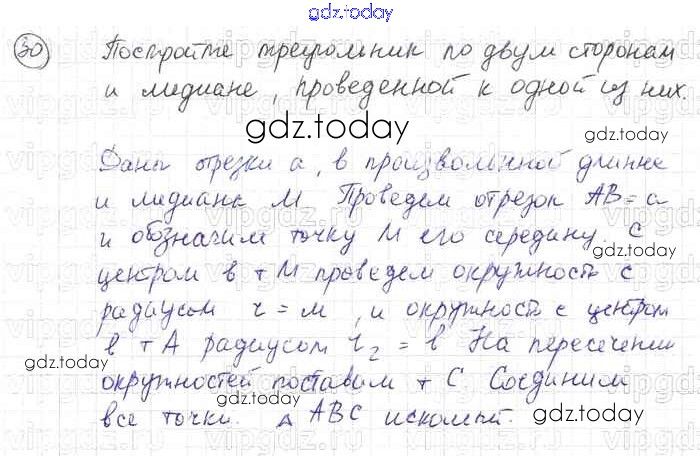 gdz.today
30 Постройте треугольник по двум сторонам
и медиане, проведенной к одной из них.
gdz.today
Даны отрезки a, в произвольной длинне
и медиана М Проведем отрезок AB=a
и обозначим точку М его середину. С
центром в т М проведем окружность с
радиусом r=м, и окружность с центром
в т А радиусом r₂=в На пересечении
gdz.today
окружностей поставим т С. Соединим
все точки. Δ ABC искомый.
gdz.today